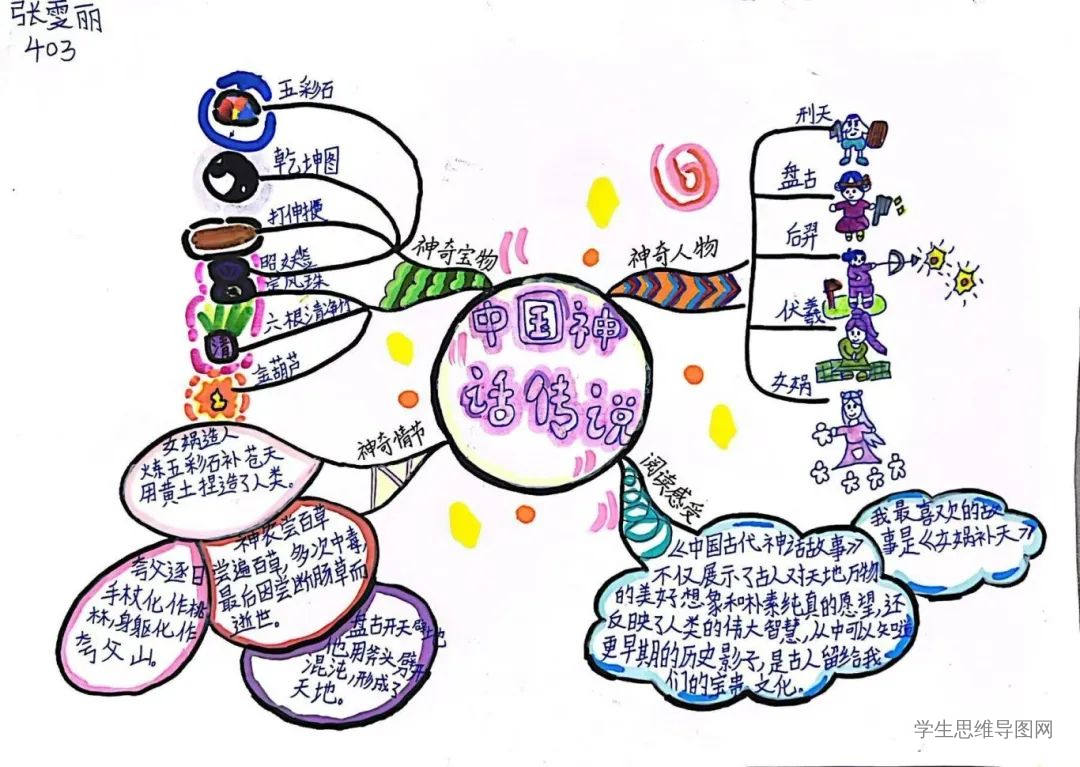 张雯丽
403
中国神
话传说
神奇宝物
五彩石
乾坤图
打伸鞭
定风珠
六根清净竹
金葫芦
神奇人物
刑天
盘古
后羿
伏羲
女娲
神奇情节
女娲造人
炼五彩石补苍天
用黄土捏造了人类。
神农尝百草
尝遍百草,多次中毒,
最后因尝断肠草而
逝世。
夸父逐日
手杖化作桃
林,身躯化作
夸父山。
盘古开天辟地
他用斧头劈开
混沌,形成了
天地。
阅读感受
《中国古代神话故事》
不仅展示了古人对天地万物
的美好想象和朴素纯真的愿望,还
反映了人类的伟大智慧,从中可以知道
更早期的历史影子,是古人留给我
们的宝贵文化。
我最喜欢的故
事是《女娲补天》
清
学生思维导图网